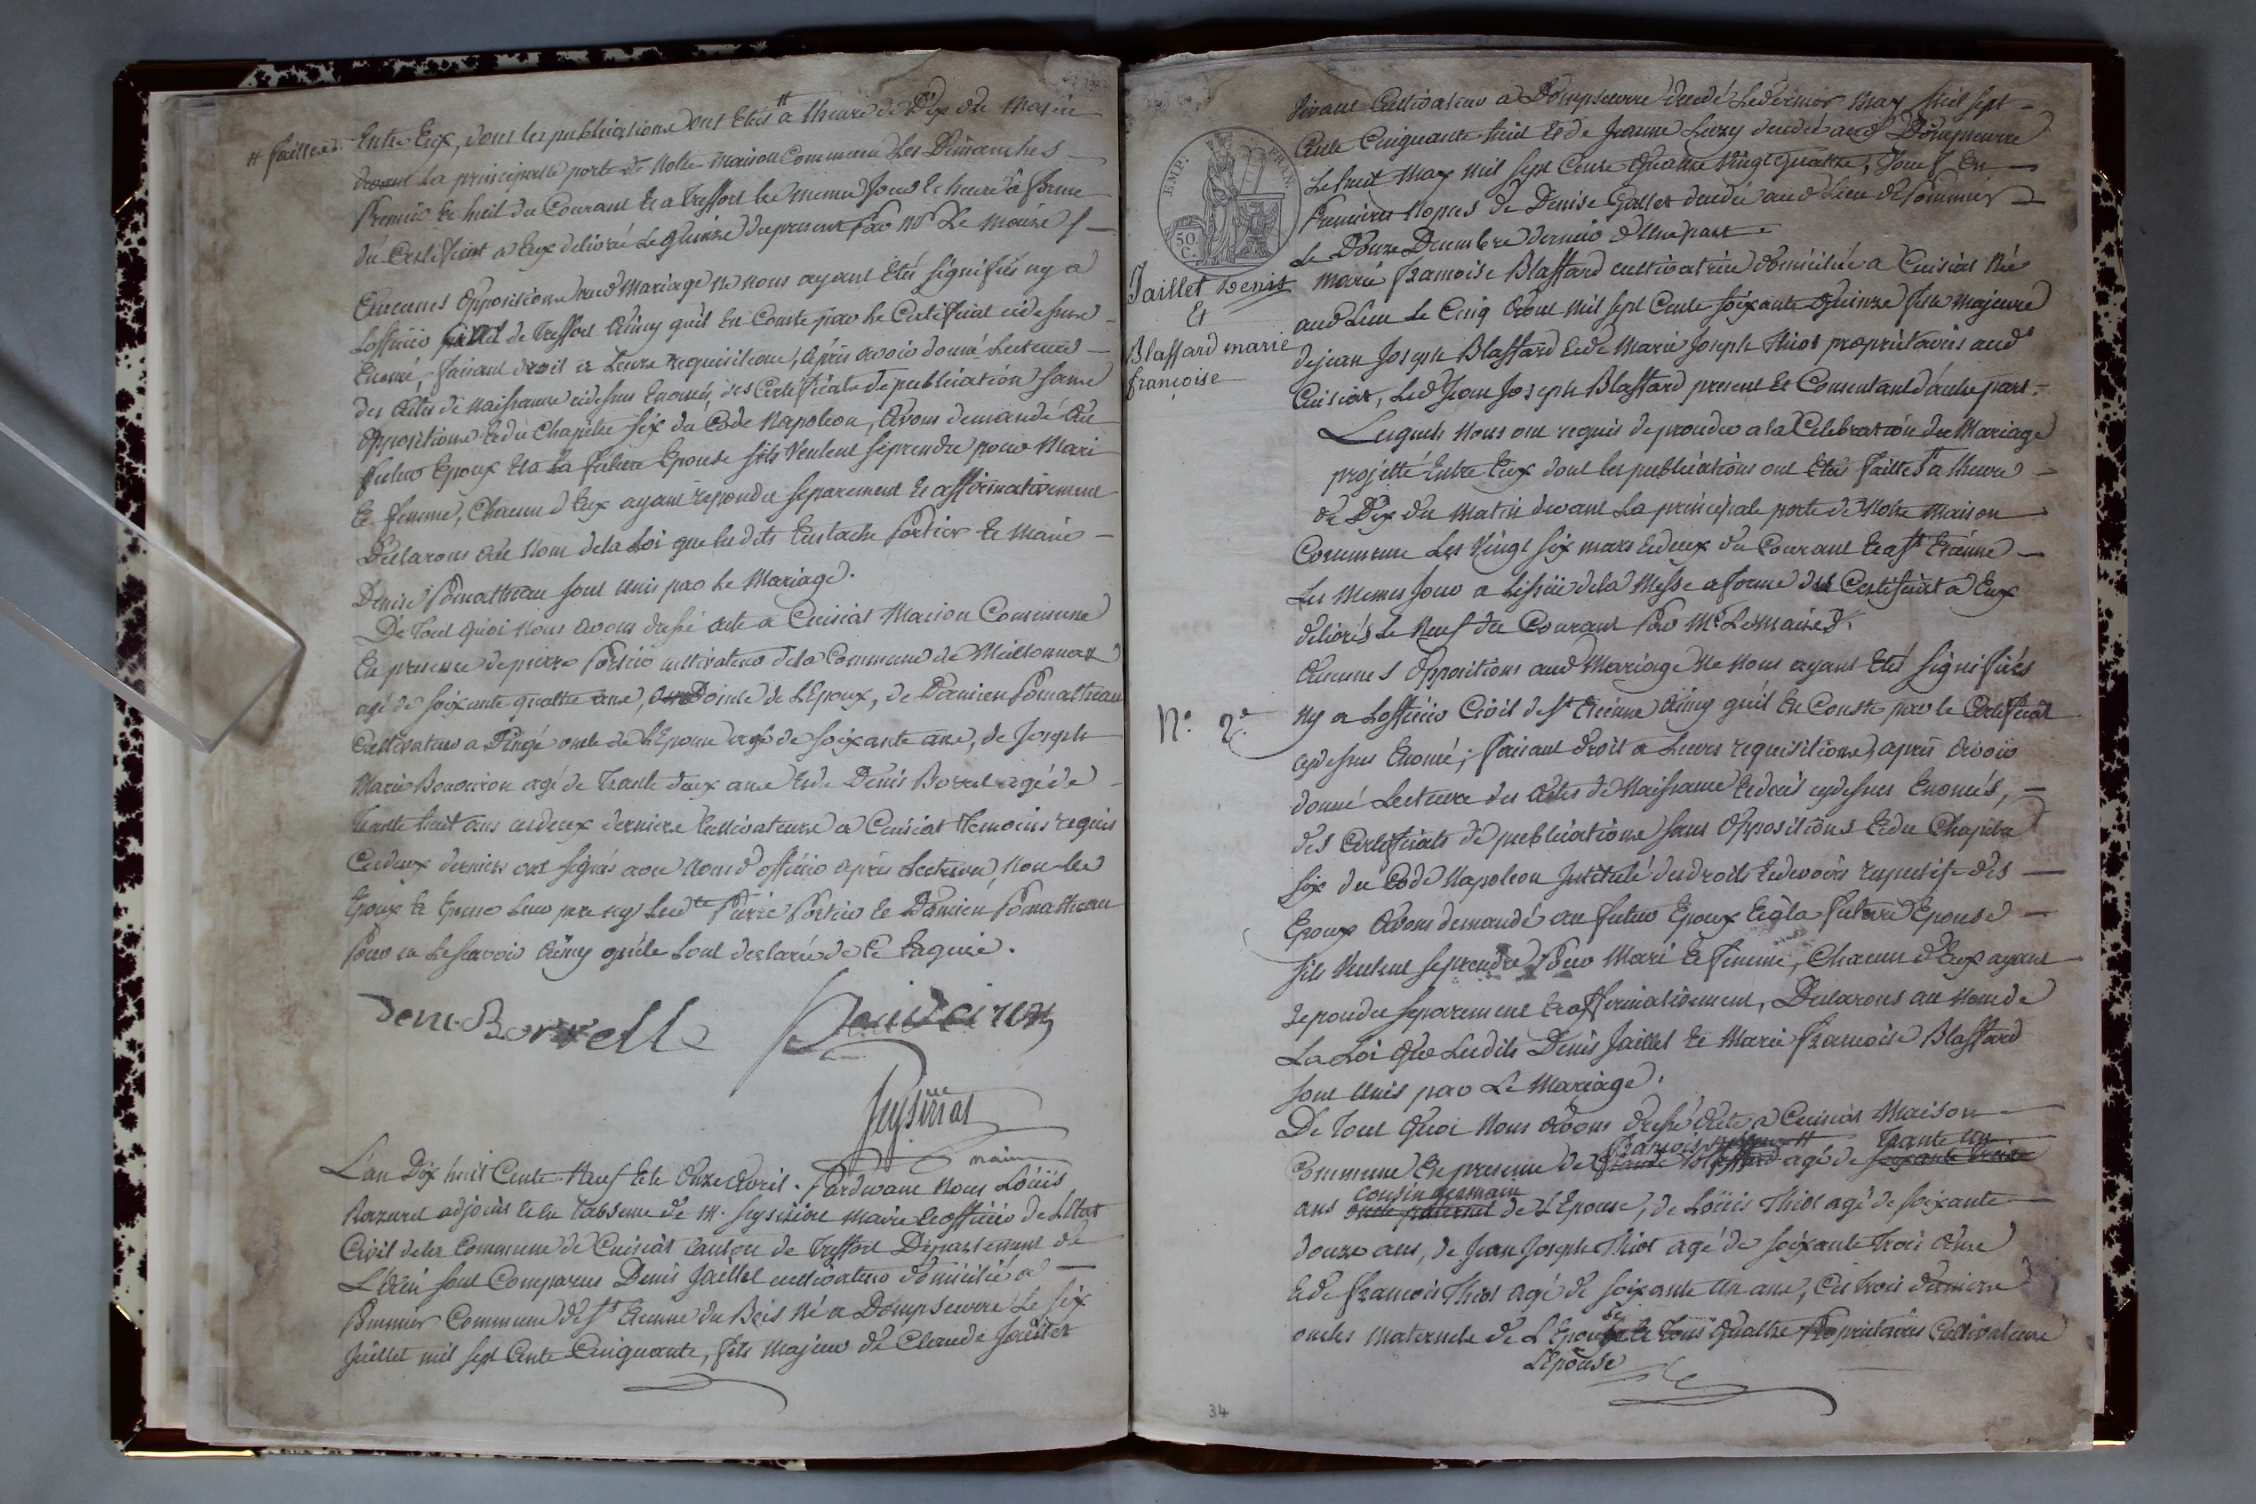 # faittes.
Entre Eux, dont les publications ont Etés # a Lheure de Dix du Matin
devant La principalle porte de Notre Maison Commune Les Dimanches
Premier et huit du Courant Et a Treffort les memes Jour Et heure a forme
du Certificat a Eux délivré Le quinze du present Par Mr Le Maire f
Aucunes Oppositions aud Mariage Ne nous ayant Eté signifiés ny a
Lofficier Civil de Treffort Ainsy quil En Conste par Le Certificat cidessus
Enoncé, faisant droit a Leurs requisitions, après avoir donné Lecture
des Actes de Naissance cidessus Enoncés, des Certificats de publication sans
Oppositions Et du Chapitre six du Code Napoleon, Avons demandé Au
futur Epoux Et a La future Epouse sils Veulent se prendre pour Mari
Et femme, Chacun d'Eux ayant repondu separement Et affirmativement
Declarons au Nom de la Loi que lesdits Eustache Portier Et Marie
Denise Pomathieu sont unis par le Mariage.
De Tout Quoi Nous avons dressé acte a Cuisiat Maison Commune
En presence de pierre Portier cultivateur de la Commune de Meillonnas
agé de soixante quatre ans, de L'Epoux, de Damien Pomathieu
Cultivateur a oncle de L'Epouse agé de soixante ans, de Joseph
Marie Bouveiron agé de Trante deux ans Et de Denis Borrel agé de
Trante huit ans cesdeux derniers Cultivateurs a Cuisiat Temoins requis
Cesdeux derniers ont signés avec Nous d officier après Lecture, Non les
Epoux Et Epouse Leur pere ny Lesdts Pierre Portier Et Damien Pomathieu
Pour ne Le scavoir Ainsy quils Lont declaré de Ce Enquis.
Denis Borrelle Bouveiron
Peysirriat
maire
L'an Dix huit Cents Neuf Et le Onze Avril. Pardevant Nous Loüis
Razurel adjoint Et en Labsence de M. Peysirier Maire Et officier de LEtat
Civil de la Commune de Cuisiat Canton de Treffort Département de
L'Ain sont Comparus Denis Jaillet cultivateur domicilié a
Pommier Commune de St Etienne du Bois Né a Dompseure Le six
Juillet mil sept Cents Cinquante, fils Majeur de Claude Jaillet
EMP. FRAN.
50. C.
Jaillet Denis
Et
Blaffard marie
françoise
N.º 2.e
Vivant Cultivateur a Dompseure decedé Le dernier May Mil sept
Cents Cinquante huit Et de Jeanne Luzy decedée aud Dompseure
Le huit May mil sept Cents Quatre Vingt Quatre; Veuf En
Premieres Nopces de Denise Gallet decedée aud Lieu de Pommier
Le Douze Decembre dernier d'Une part
Marie françoise Blaffard cultivatrice domiciliée a Cuisiat Née
aud Lieu Le Cinq Aout Mil sept Cents soixante Quinze fille Majeure
de jean Joseph Blaffard Et de Marie Joseph Thiot propriétaires aud
Cuisiat, Led Jean Joseph Blaffard present Et Consentant d'autre part.
Lesquels Nous ont requis de proceder a la Celebration du Mariage
projetté Entre Eux dont les publications ont Eté faittes a Lheure
de Dix du Matin devant La principale porte de Notre Maison
Commune Les Vingt six mars Et deux du Courant Et a St Etienne
Les Memes Jour a Lissüe de la Messe a forme du Certificat a Eux
delivrés Le Neuf du Courant Par Mr Le Maire d.
Aucunes Oppositions aud Mariage Ne Nous ayant Eté signifiés
Ny a Lofficier Civil de St Etienne Ainsy quil En Conste par le Certificat
cydessus Enoncé; faisant droit a Leurs requisitions, après avoir
donné Lecture des Actes de Naissance Et decès cydessus Enoncés,
des Certificats de publications sans Oppositions Et du Chapitre
six du Code Napoleon Intitulé des droits Et devoirs respectifs des
Epoux Avons demandé au futur Epoux Et a la future Epouse
sils Veulent se prendre Pour Mari Et femme, Chacun d'Eux ayant
repondu separement Et affirmativement, Declarons au Nom de
La Loi Que Lesdits Denis Jaillet Et Marie françoise Blaffard
sont Unis par Le Mariage.
De Tout Quoi Nous Avons dressé Acte a Cuisiat Maison
François Trante Un
Commune En presence de Claude Blaffard agé de soixante Treize
cousin germain
ans oncle paternel de L'Epouse, de Loüis Thiot agé de soixante
douze ans, de Jean Joseph Thiot agé de soixante Trois ans
Et de françois Thiot agé de soixante Un ans, Ces trois derniers
oncles maternels de L'Epouse Et Tous Quattre Proprietaires Cultivateurs
L'épouse
34